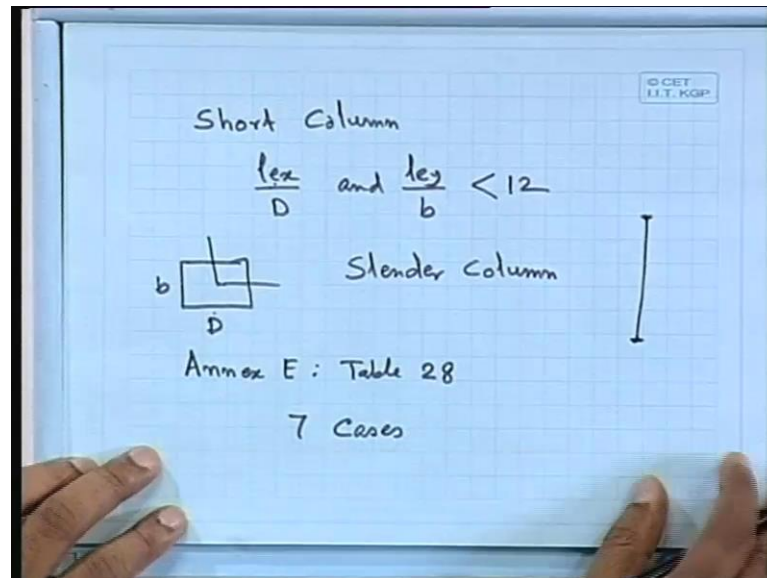 © CET
I.I.T. KGP
Short Column
lex/D and ley/b < 12
b
Slender Column
D
Annex E : Table 28
7 Cases